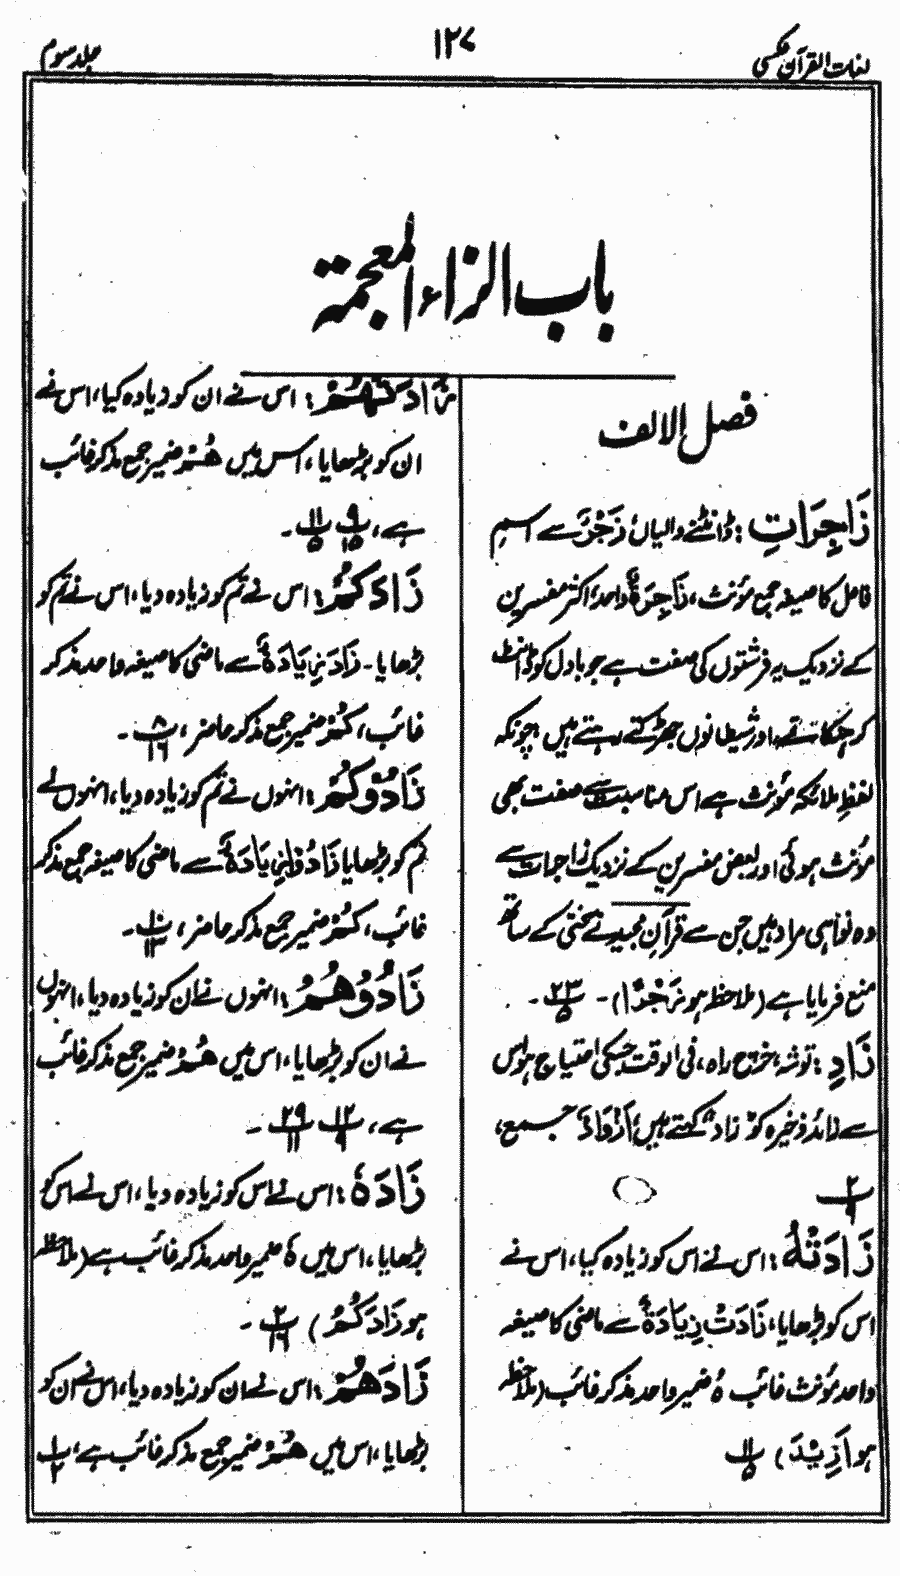 لغات القرآن عکسی
۱۲۷
جلد سوم
باب الزاء المعجمة
فصل الالف
زَاجِرَاتِ : ڈانٹنے والیاں، زَجْرٌ سے اسم
فاعل کا صیغہ جمع مؤنث، زَاجِرَةٌ واحد، اکثر مفسرین
کے نزدیک یہ فرشتوں کی صفت ہے جو بادل کو ڈانٹ
کر ہنکاتے اور شیطانوں کو جھڑکتے رہتے ہیں چونکہ
لفظ ملائکہ مؤنث ہے اس مناسبت سے صفت بھی
مؤنث ہوئی اور بعض مفسرین کے نزدیک زاجرات سے
وہ نواہی مراد ہیں جن سے قرآن مجید نے سختی کے ساتھ
منع فرمایا ہے (ملاحظہ ہو زَجْرًا) - ۲۳/۵ -
زَادِ : توشہ، خرچ راہ، فی الوقت جسکی احتیاج ہو اس
سے زائد ذخیرہ کو زاد کہتے ہیں، اَزْوَادٌ جمع،
۲/۹
زَادَتْهُ : اس نے اس کو زیادہ کیا، اس نے
اس کو بڑھایا، زَادَتْ زِيَادَةٌ سے ماضی کا صیغہ
واحد مؤنث غائب ہُ ضمیر واحد مذکر غائب (ملاحظہ
ہو اَزِيْدَ) ۱۱/۵
زَادَتْهُمْ : اس نے ان کو زیادہ کیا، اس نے
ان کو بڑھایا، اس میں هُمْ ضمیر جمع مذکر غائب
ہے، ۹/۱۵ ۱۱/۵ -
زَادَكُمْ : اس نے تم کو زیادہ دیا، اس نے تم کو
بڑھایا - زَادَ زِيَادَةٌ سے ماضی کا صیغہ واحد مذکر
غائب، كُمْ ضمیر جمع مذکر حاضر، ۸/۱۶ -
زَادُوْكُمْ : انہوں نے تم کو زیادہ دیا، انہوں نے
تم کو بڑھایا زَادُوْا زِيَادَةٌ سے ماضی کا صیغہ جمع مذکر
غائب، كُمْ ضمیر جمع مذکر حاضر، ۱۰/۱۳ -
زَادُوْهُمْ : انہوں نے ان کو زیادہ دیا، انہوں
نے ان کو بڑھایا، اس میں هُمْ ضمیر جمع مذکر غائب
ہے، ۱۲/۹ ۲۹/۱۱ -
زَادَهٗ : اس نے اس کو زیادہ دیا، اس نے اس کو
بڑھایا، اس میں ہٗ ضمیر واحد مذکر غائب ہے (ملاحظہ
ہو زَادَكُمْ) ۲/۱۶ -
زَادَهُمْ : اس نے ان کو زیادہ دیا، اس نے ان کو
بڑھایا، اس میں هُمْ ضمیر جمع مذکر غائب ہے، ۱/۲